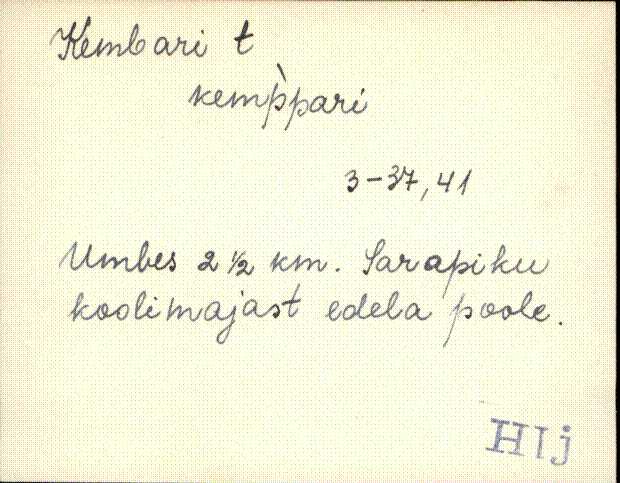 Kembari t
kemp̀pari
3-37, 41
Umbes 2 ½ km. Sarapiku
koolimajast edela poole.
HIj